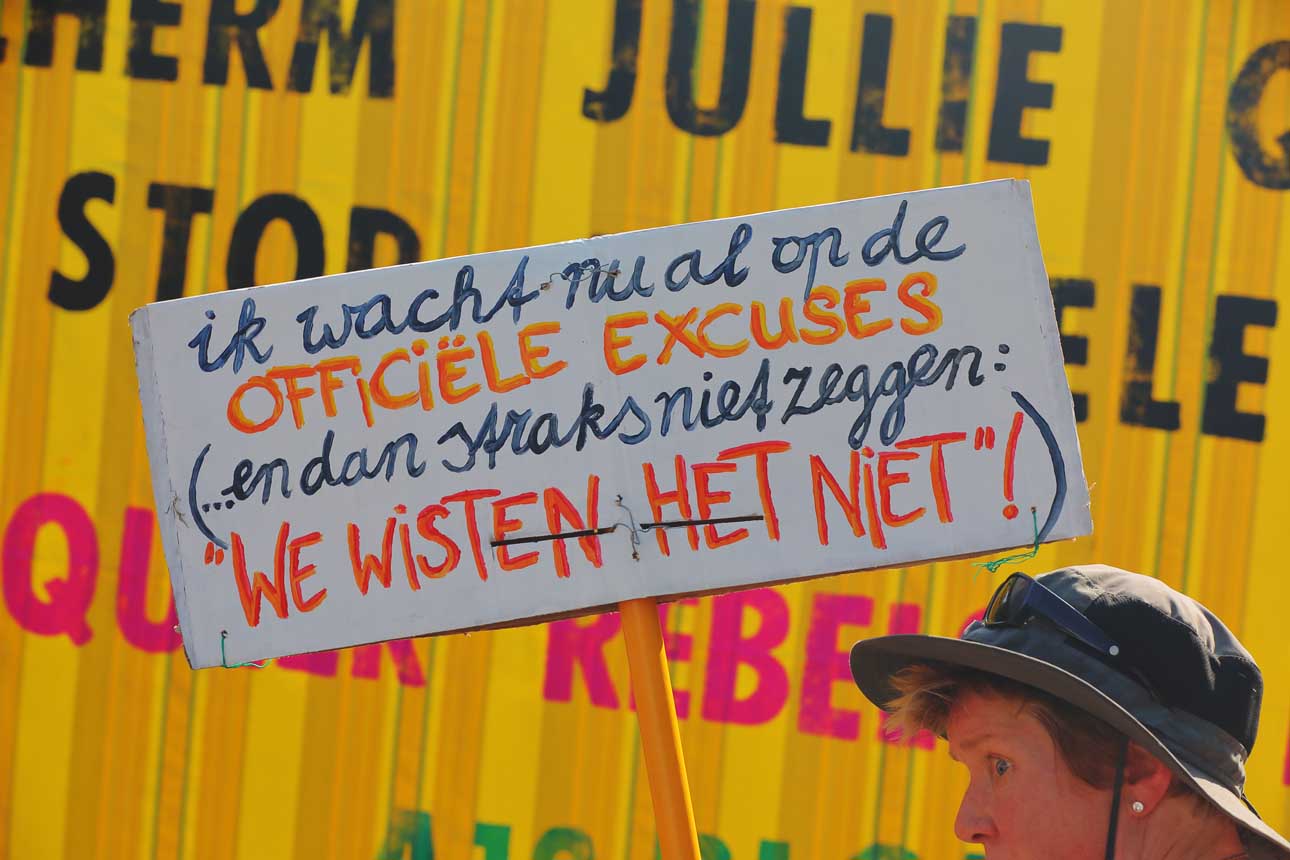 JULLIE
STOP
ik wacht nu al op de
OFFICIËLE EXCUSES
(...en dan straks niet zeggen:
"WE WISTEN HET NIET"!)